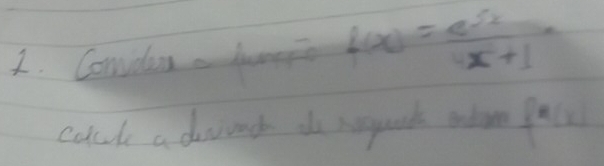 1. Considere a função f(x) = e^5x / x+1.
calcule a derivada de segunda ordem f"(x)